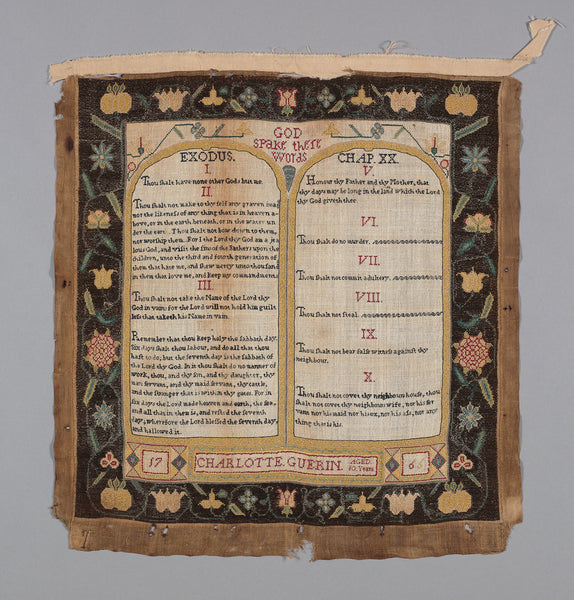 GOD
spake these
Words
EXODUS.
I.
Thou shalt have none other Gods but me.
II.
Thou shalt not make to thy self any graven imag
nor the likeness of any thing that is in heaven a
bove, or in the earth beneath, or in the water un
der the earth. Thou shalt not bow down to them,
nor worship them. For I the Lord thy God am a jea
lous God, and visit the sins of the Fathers upon the
children, unto the third and fourth generation of
them that hate me, and shew mercy unto thousand
in them that love me, and keep my commandments
III.
Thou shalt not take the Name of the Lord thy
God in vain: for the Lord will not hold him guilt
less that taketh his Name in vain.
Remember that thou keep holy the sabbath day.
Six days shalt thou labour, and do all that thou
hast to do; but the seventh day is the sabbath of
the Lord thy God. In it thou shalt do no manner of
work, thou, and thy son, and thy daughter, thy
man servant, and thy maid servant, thy cattle,
and the stranger that is within thy gates. For in
six days the Lord made heaven and earth, the sea,
and all that in them is, and rested the seventh
day; wherefore the Lord blessed the seventh day,
and hallowed it.
CHAP. XX.
V.
Honour thy Father and thy Mother, that
thy days may be long in the land which the Lord
thy God giveth thee.
VI.
Thou shalt do no murder.
VII.
Thou shalt not commit adultery.
VIII.
Thou shalt not steal.
IX.
Thou shalt not bear false witness against thy
neighbour.
X.
Thou shalt not covet thy neighbours house, thou
shalt not covet thy neighbours wife, nor his ser
vant nor his maid nor his ox, nor his ass, nor any
thing that is his.
17
CHARLOTTE. GUERIN.
AGED.
10. Years